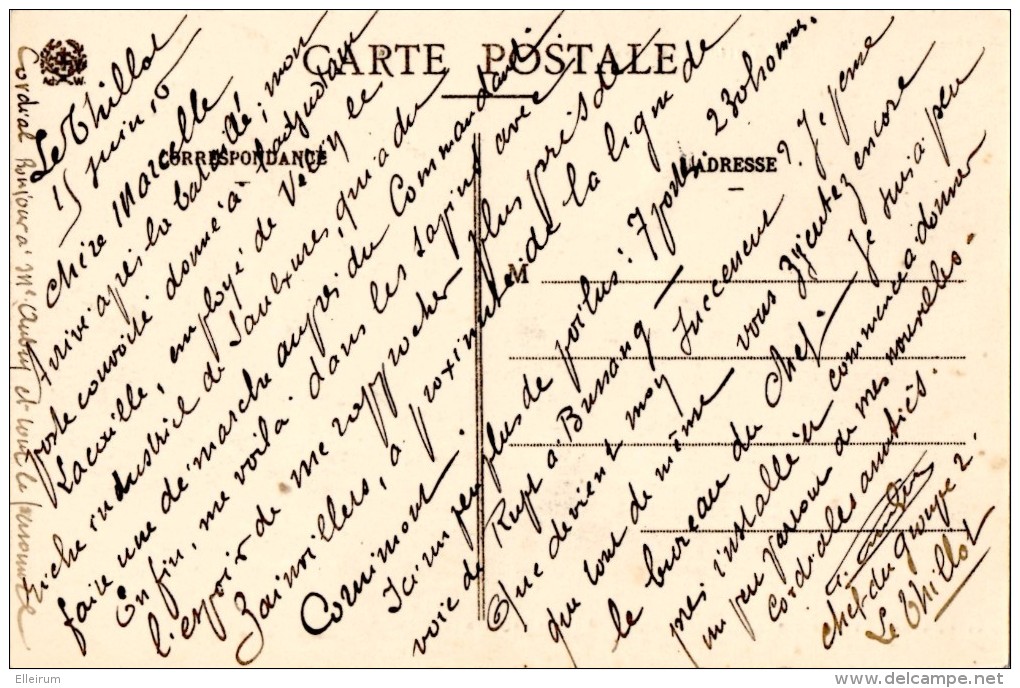 CARTE POSTALE
CORRESPONDANCE
ADRESSE
M
Le Thillot
15 juin 10
Chère Marcelle
Arrivé après la bataille ; mon
poste convoité donné à l'adjudant
Lacaille, employé de Vélin le
riche industriel de Saulxures, qui a du
faire une démarche auprès du Commandant
Enfin, me voilà dans les sapins avec
l'espoir de me rapprocher plus près de
Zainvillers, à proximité de la ligne de
Cornimont.
Ici un peu plus de poilus : 7 postes 230 hommes.
voie de Rupt à Bussang —
Que devient mon successeur ? Je pense
que tout de même vous y entrez encore
le bureau du Chef — Je suis à peu
près installé et commence à donner
un peu partout de mes nouvelles.
Cordiales amitiés.
Chef du groupe 2
Le Thillot
Cordial Bonjour à Me Aubry et tout le personnel
Elleirum
Delcampe.net